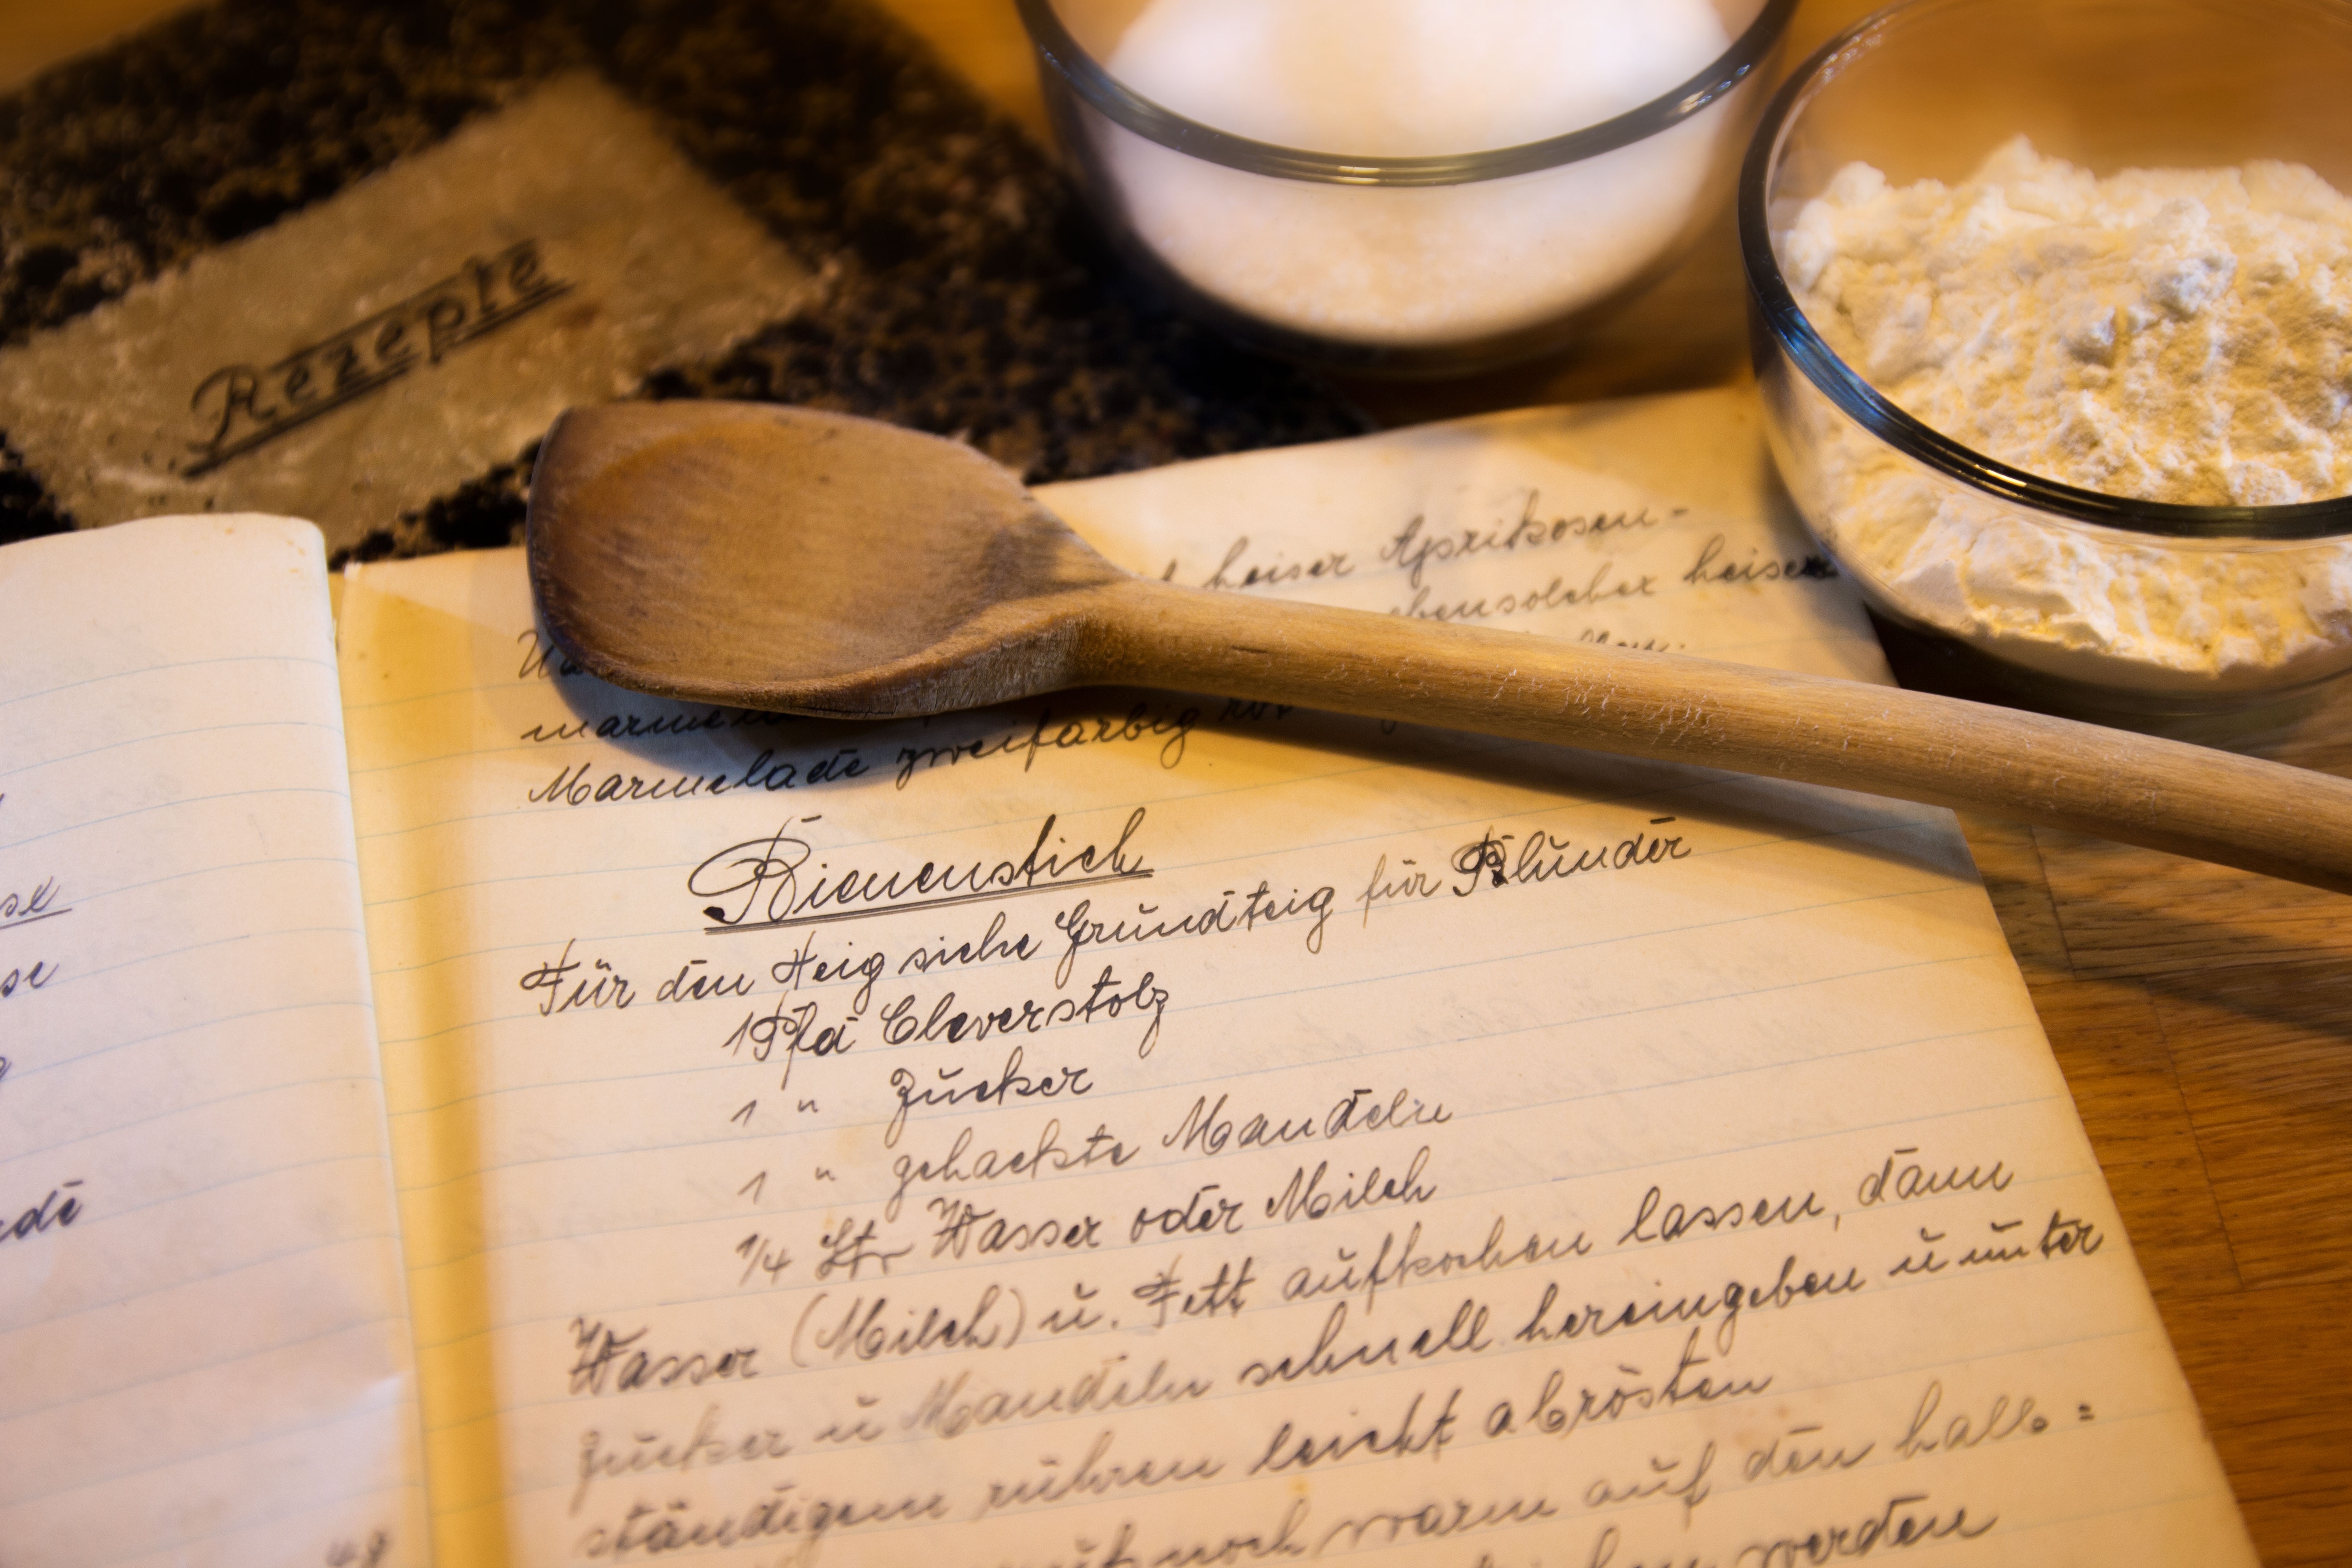 Rezepte
heiser Aprikosen-
ebensolcher heiser
Marmelade zweifarbig rot
Bienenstich
Für den Teig siehe Grundteig für Plunder
1 Pfd Cleverstolz
1 " Zucker
1 " gehackte Mandeln
1/4 Ltr Wasser oder Milch
Wasser (Milch) u. Fett aufkochen lassen, dann
Zucker u Mandeln schnell hereingeben u unter
ständigem rühren leicht abrösten
noch warm auf den halb=
werden